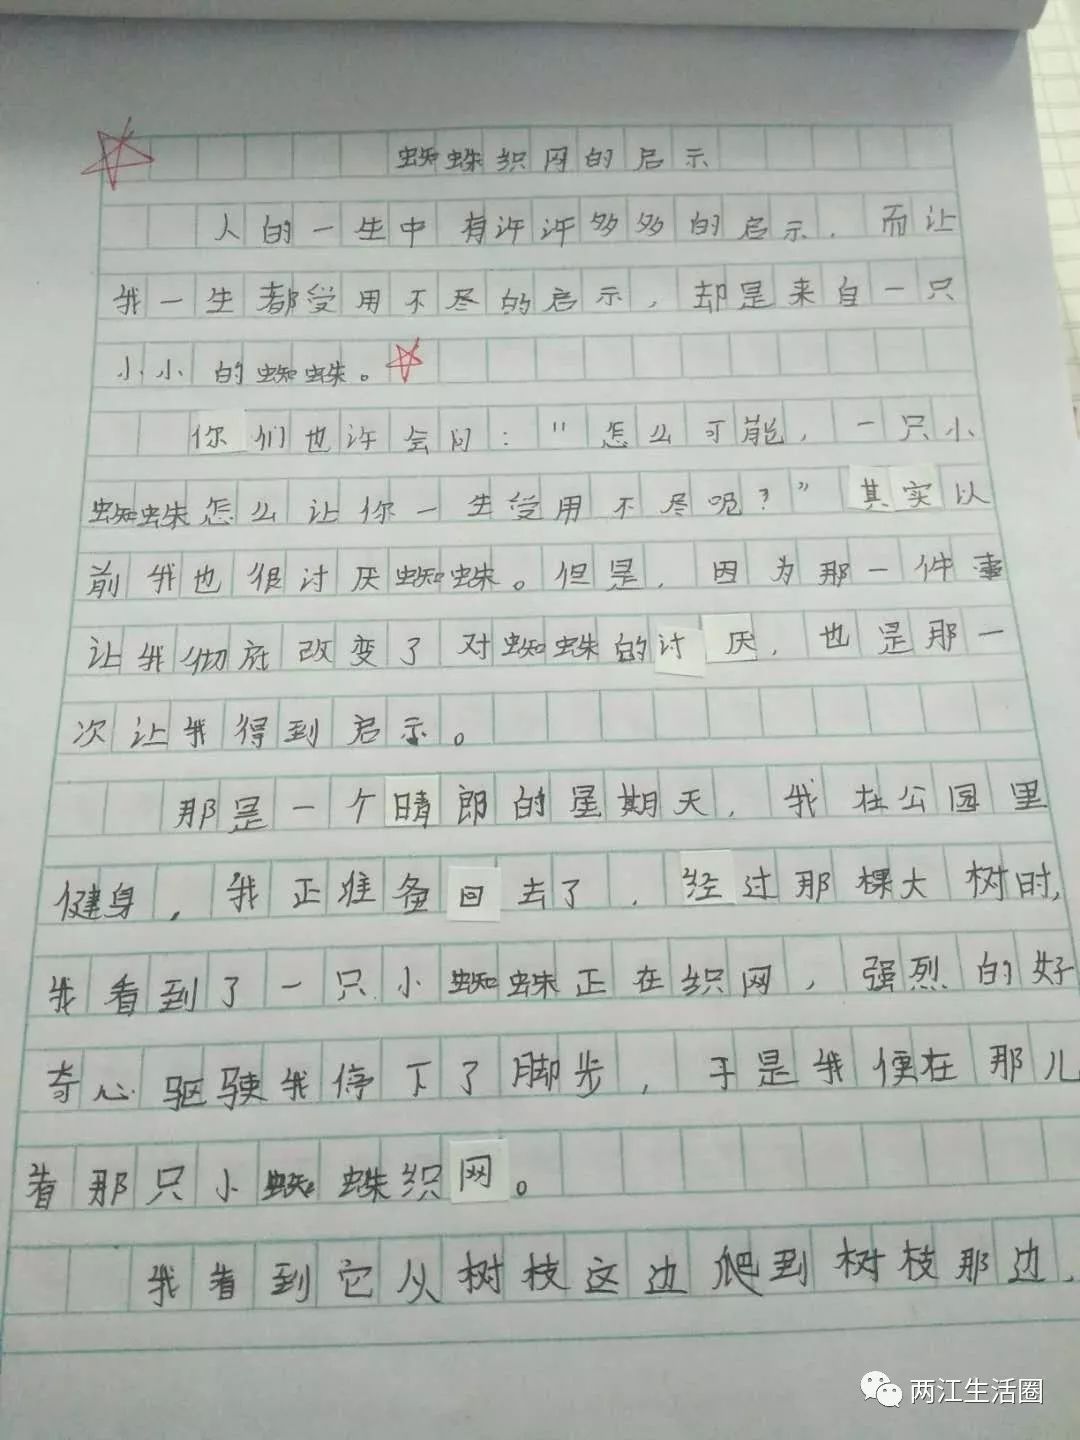 蜘蛛织网的启示
人的一生中有许许多多的启示，而让
我一生都受用不尽的启示，却是来自一只
小小的蜘蛛。
你们也许会问："怎么可能，一只小
蜘蛛怎么让你一生受用不尽呢？"其实以
前我也很讨厌蜘蛛。但是，因为那一件事
让我彻底改变了对蜘蛛的讨厌，也是那一
次让我得到启示。
那是一个晴郎的星期天，我在公园里
健身，我正准备回去了，经过那棵大树时，
我看到了一只小蜘蛛正在织网，强烈的好
奇心驱驶我停下了脚步，于是我便在那儿
看那只小蜘蛛织网。
我看到它从树枝这边爬到树枝那边，
两江生活圈